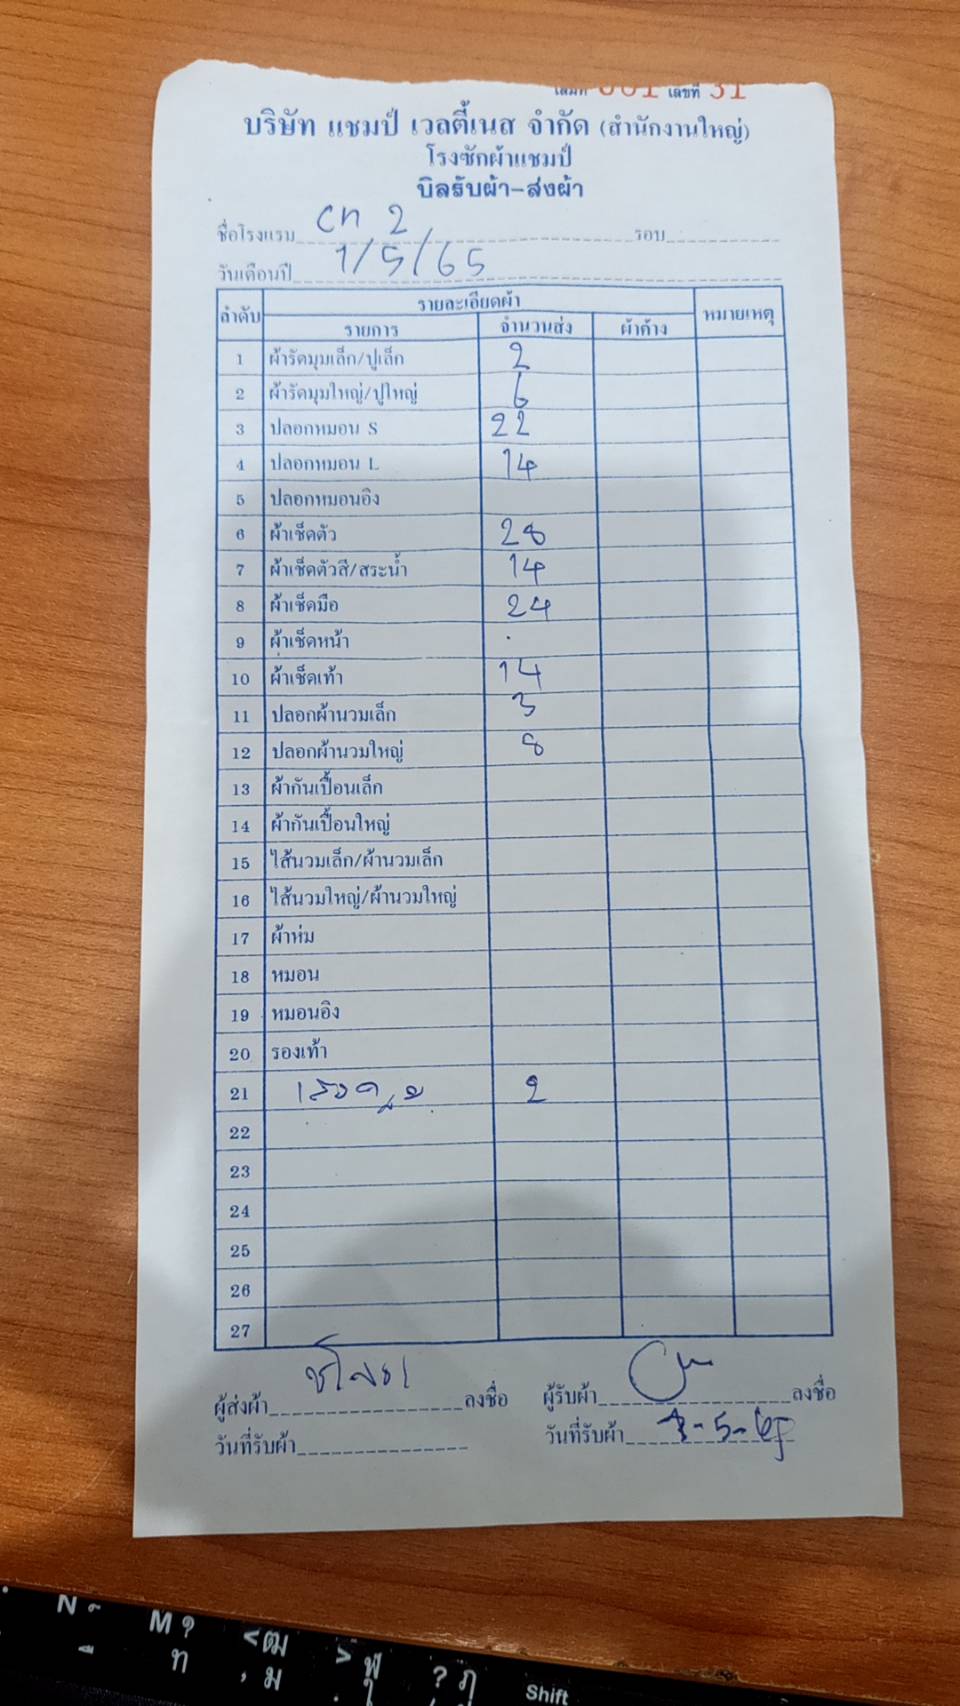 เล่มที่ 001 เลขที่ 31
บริษัท แชมป์ เวลตี้เนส จำกัด (สำนักงานใหญ่)
โรงซักผ้าแชมป์
บิลรับผ้า-ส่งผ้า
ชื่อโรงแรม CN 2 รอบ
วันเดือนปี 1/5/65
ลำดับ รายละเอียดผ้า หมายเหตุ
รายการ จำนวนส่ง ผ้าค้าง
1 ผ้ารัดมุมเล็ก/ปูเล็ก 2
2 ผ้ารัดมุมใหญ่/ปูใหญ่ 6
3 ปลอกหมอน S 22
4 ปลอกหมอน L 14
5 ปลอกหมอนอิง
6 ผ้าเช็ดตัว 28
7 ผ้าเช็ดตัวสี/สระน้ำ 14
8 ผ้าเช็ดมือ 24
9 ผ้าเช็ดหน้า
10 ผ้าเช็ดเท้า 14
11 ปลอกผ้านวมเล็ก 3
12 ปลอกผ้านวมใหญ่ 8
13 ผ้ากันเปื้อนเล็ก
14 ผ้ากันเปื้อนใหญ่
15 ไส้นวมเล็ก/ผ้านวมเล็ก
16 ไส้นวมใหญ่/ผ้านวมใหญ่
17 ผ้าห่ม
18 หมอน
19 หมอนอิง
20 รองเท้า
21 2
22
23
24
25
26
27
ผู้ส่งผ้า ลงชื่อ ผู้รับผ้า ลงชื่อ
วันที่รับผ้า วันที่รับผ้า -5-65
N
M ท
< ฒ , ม
> ฬ .
? ฦ
Shift